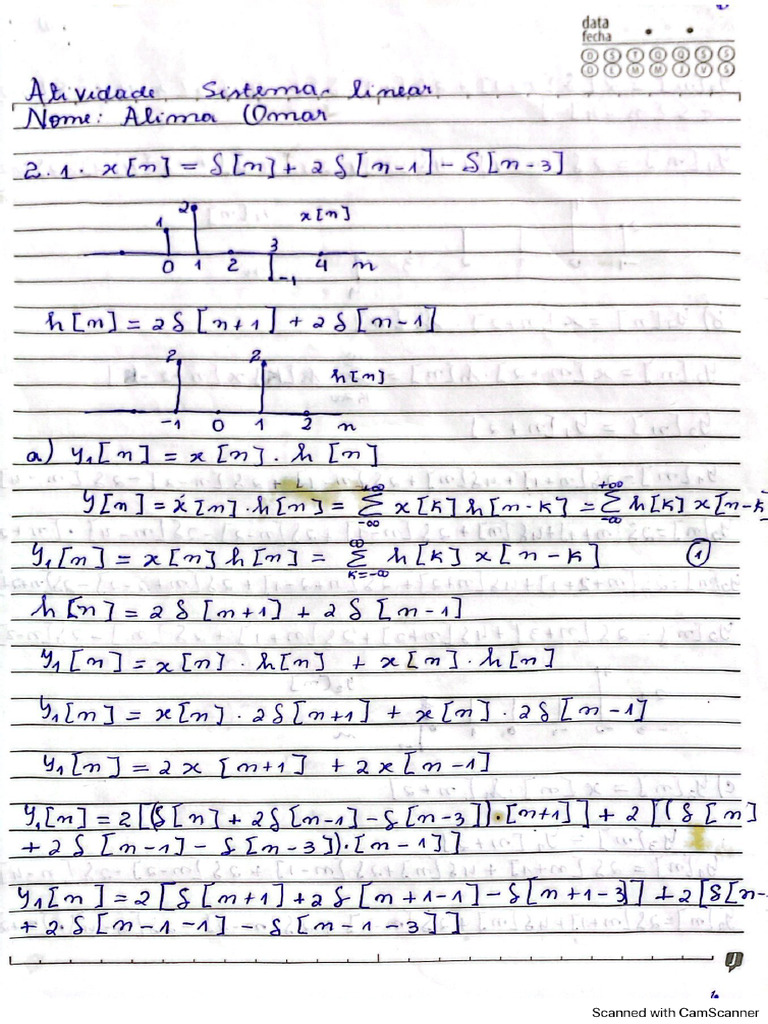 data
fecha
D S T Q Q S S
D L M M J V S
Atividade Sistema linear
Nome: Alima Omar
2.1. x[n] = δ[n] + 2δ[n-1] - δ[n-3]
2
1
x[n]
3
0 1 2 4 n
-1
h[n] = 2δ[n+1] + 2δ[n-1]
2 2
h[n]
-1 0 1 2 n
a) y₁[n] = x[n] . h[n]
y[n] = x[n] . h[n] = +∞ Σ -∞ x[k] h[n-k] = +∞ Σ -∞ h[k] x[n-k
y₁[n] = x[n] h[n] = ∞ Σ k=-∞ h[k] x[n-k] ①
h[n] = 2δ[n+1] + 2δ[n-1]
y₁[n] = x[n] . h[n] + x[n] . h[n]
y₁[n] = x[n] . 2δ[n+1] + x[n] . 2δ[n-1]
y₁[n] = 2x[n+1] + 2x[n-1]
y₁[n] = 2[(δ[n] + 2δ[n-1] - δ[n-3]).[n+1]] + 2[(δ[n]
+ 2δ[n-1] - δ[n-3]).[n-1]]
y₁[n] = 2[δ[n+1] + 2δ[n+1-1] - δ[n+1-3]] + 2[δ[n-
+ 2.δ[n-1-1] - δ[n-1-3]]
Scanned with CamScanner